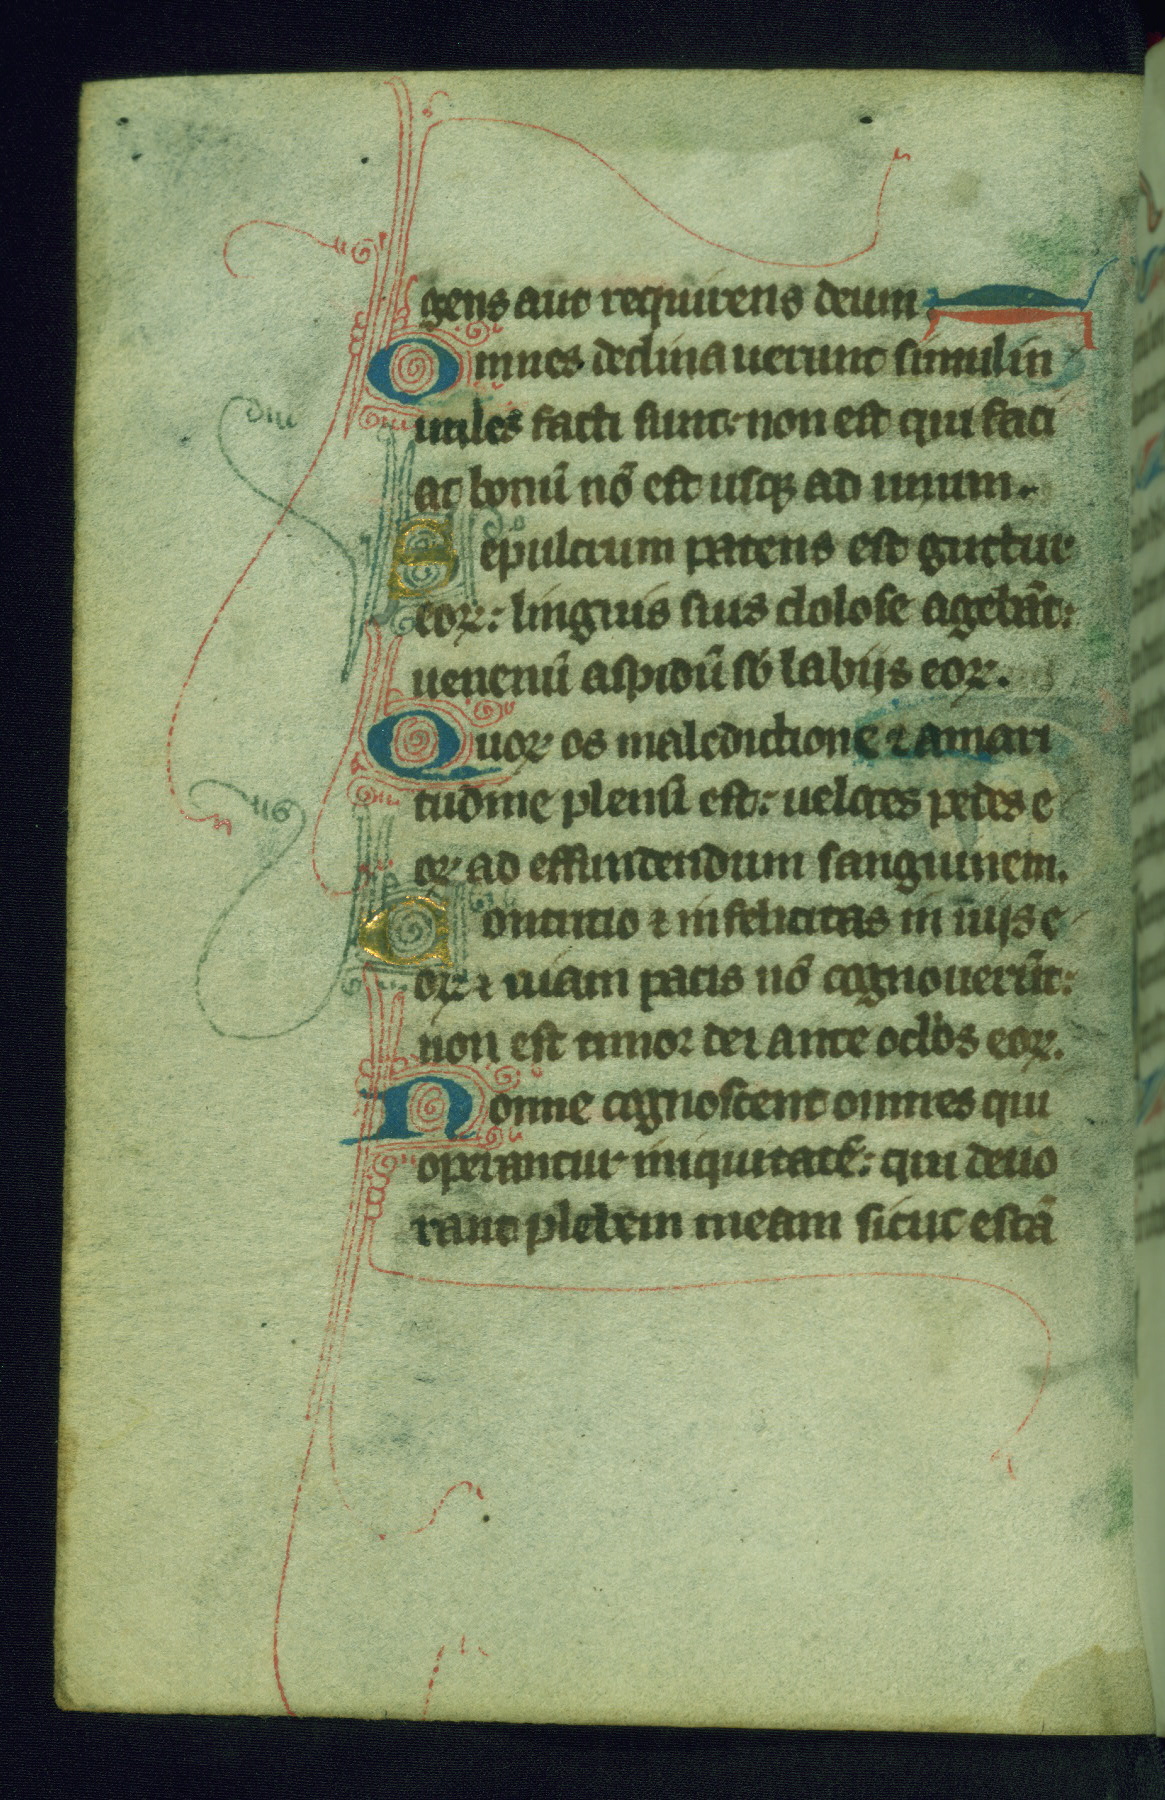 gens aut requirens deum.
Omnes declinauerunt simul in
utiles facti sunt: non est qui faci
at bonū nō est usqꝫ ad unum.
Sepulcrum patens est guttur
eoꝝ: linguis suis dolose agebāt:
uenenū aspidū sb̄ labijs eoꝝ.
Quoꝝ os maledictione ⁊ amari
tudine plenū est: ueloces pedes e
oꝝ ad effundendum sanguinem.
Contritio ⁊ infelicitas in uijs e
oꝝ ⁊ uiam pacis nō cognouerūt:
non est timor dei ante oclos eoꝝ.
Nonne cognoscent omnes qui
operantur iniquitatē: qui deuo
rant plebem meam sicut escā